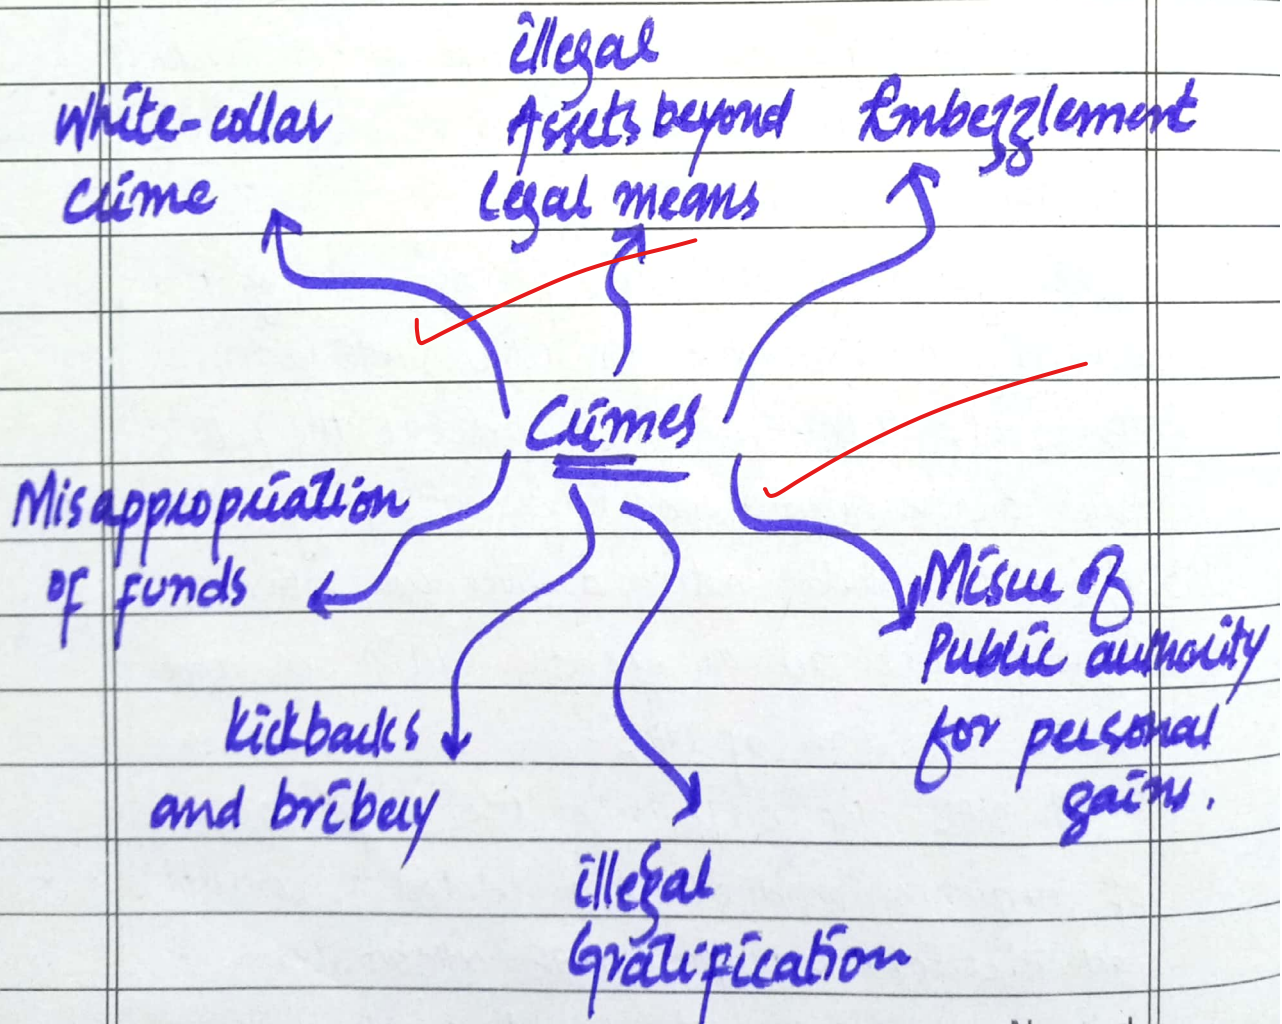 White-collar
crime
illegal
Assets beyond
legal means
Embezzlement
Crimes
Misappropriation
of funds
kickbacks
and bribery
illegal
Gratification
Misue of
Public authority
for personal
gains.